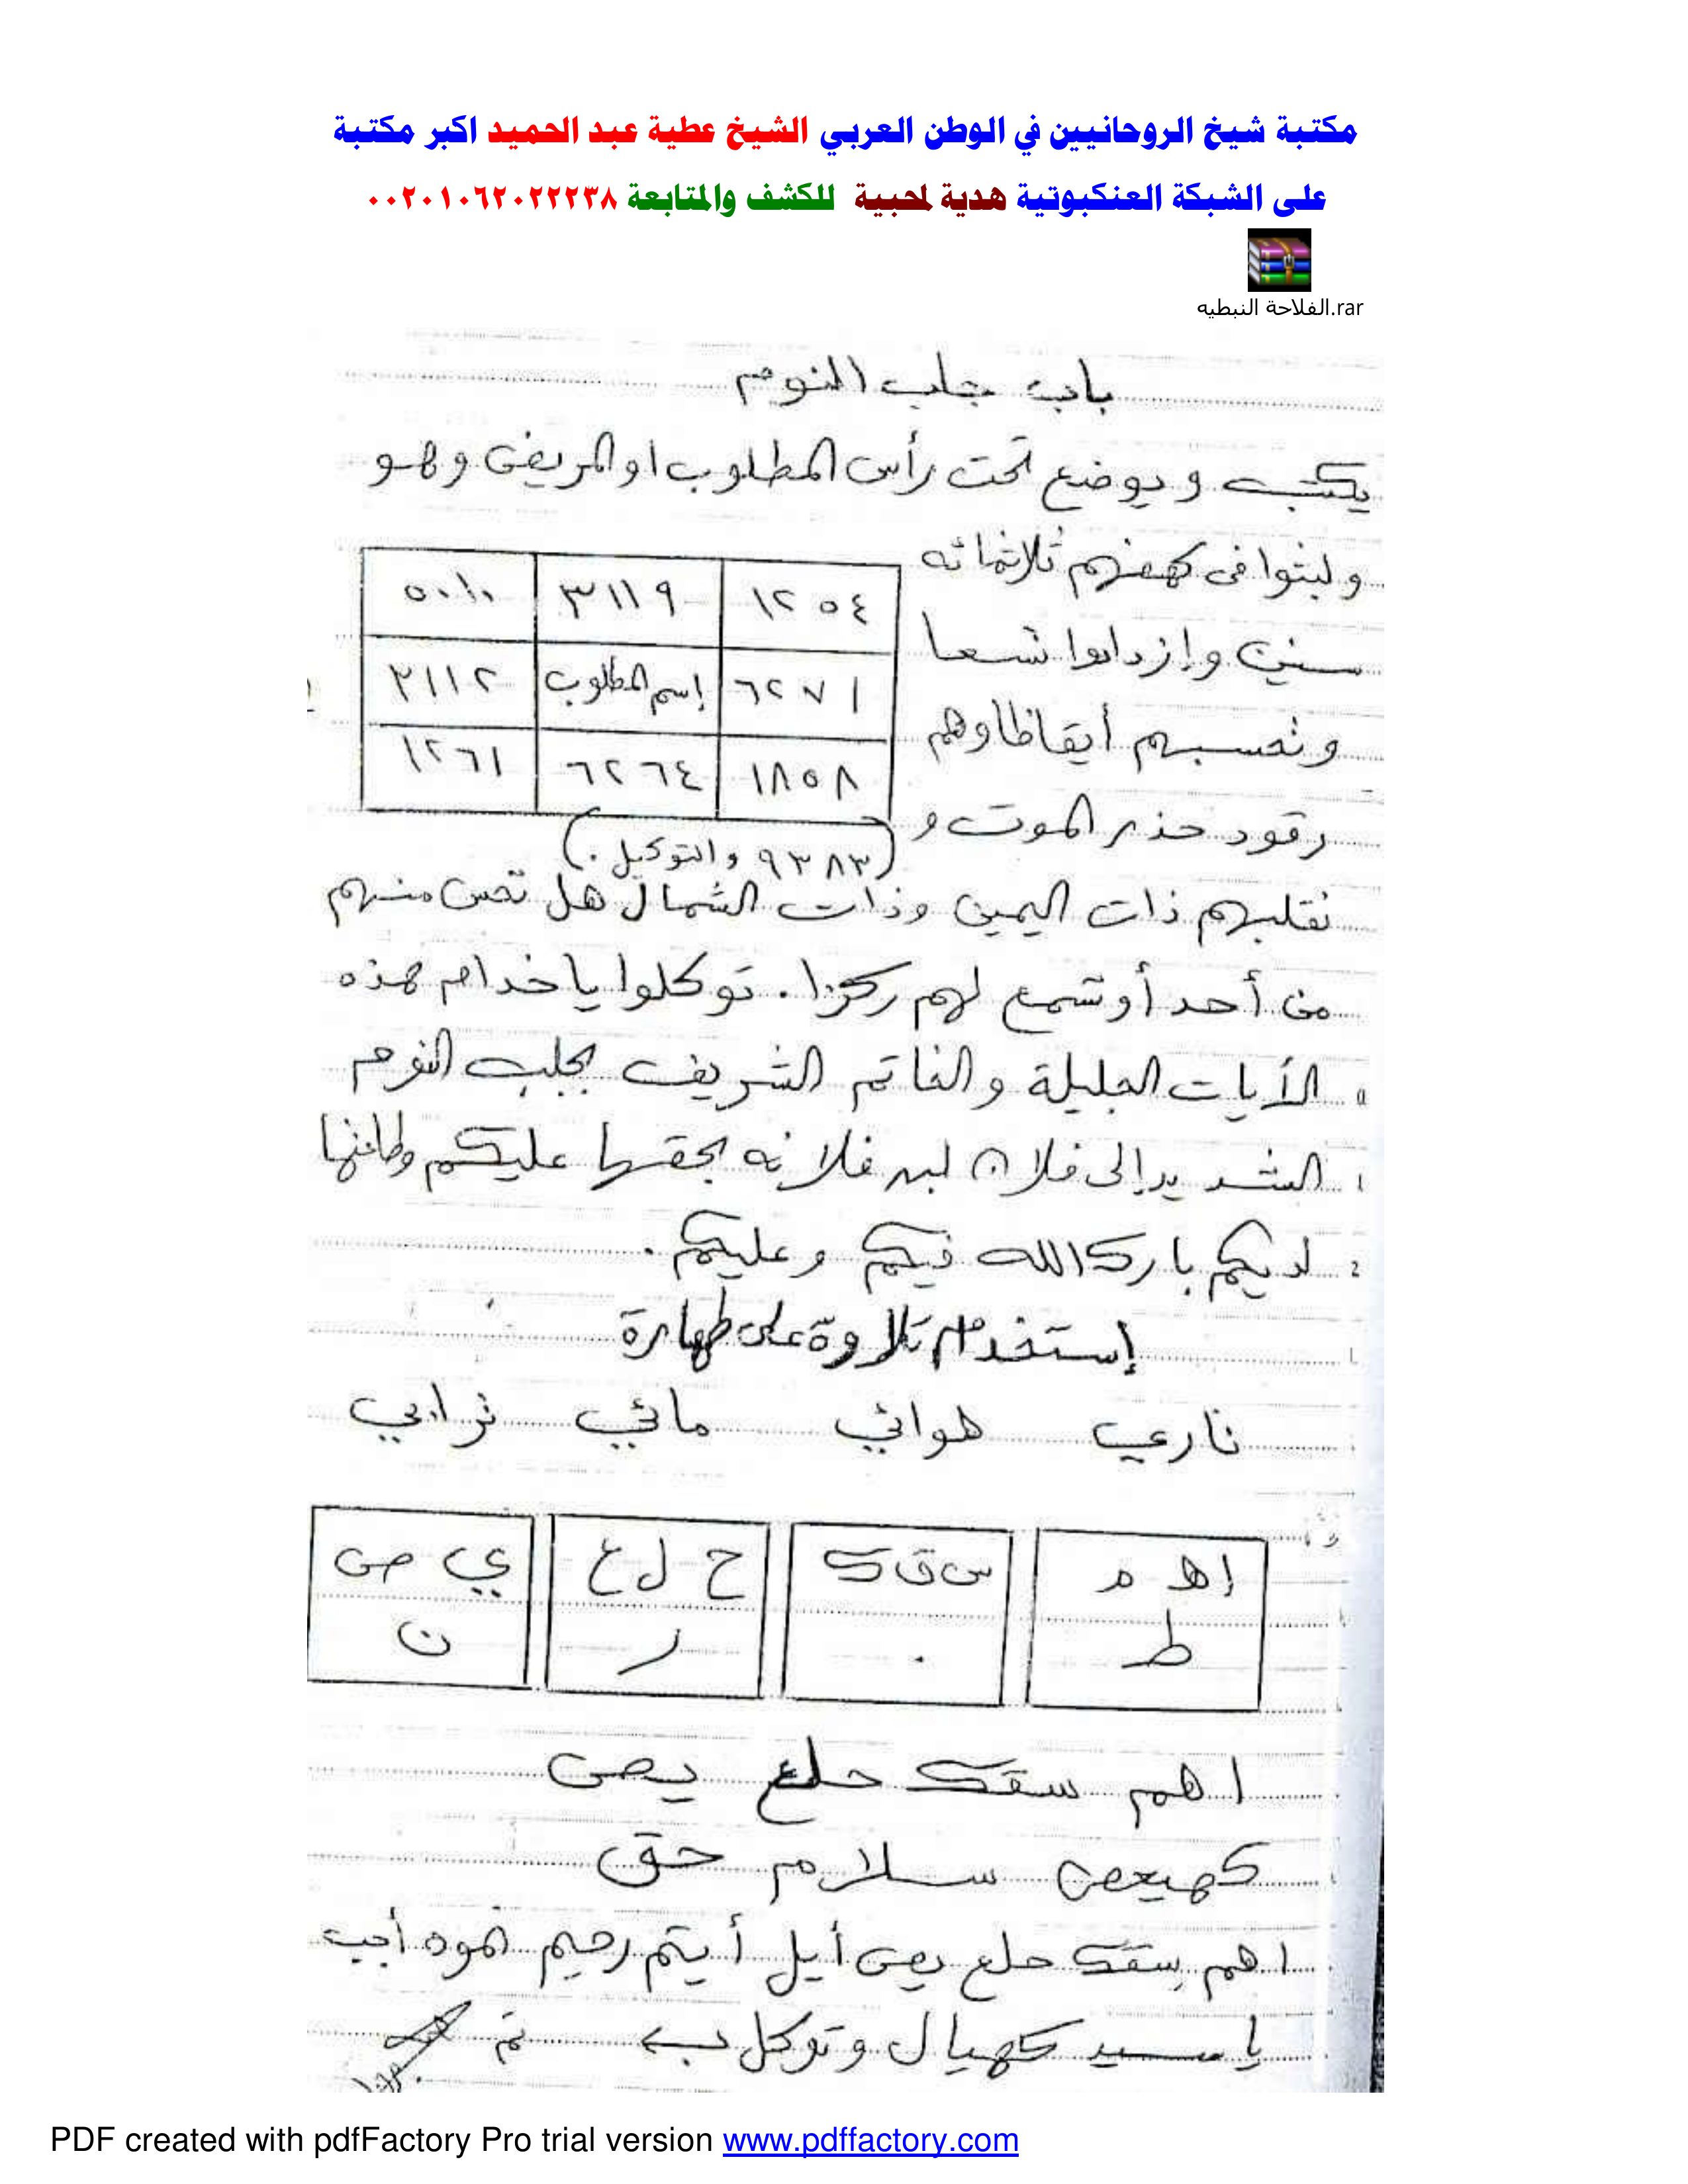 مكتبة شيخ الروحانيين في الوطن العربي الشيخ عطية عبد الحميد اكبر مكتبة
على الشبكة العنكبوتية هدية لمحبية للكشف والمتابعة ٠٠٢٠١٠٦٢٠٢٢٢٣٨
الفلاحة النبطيه.rar
باب جلب النوم
يكتب ويوضع تحت رأس المطلوب او المريض وهو
ولبثوا في كهفهم ثلاثمائه
سنين وإزدادوا تسعا
وتحسبهم أيقاظا وهم
رقود حذر الموت و
١٢٥٤ ٣١١٩
٦٢٧١ إسم المطلوب ٣١١٢
١٨٥٨ ٦٢٦٤ ١٢٦١
(٩٣٨٣ والتوكيل.)
نقلبهم ذات اليمين وذات الشمال هل تحس منهم
من أحد أو تسمع لهم ركزا. توكلوا يا خدام هذه
الأيات الجليلة والخاتم الشريف بجلب النوم
الشديد إلى فلان ابن فلانه بحقها عليكم وطاعتها
لديكم بارك الله فيكم وعليكم.
إستخدام تلاوة على طهارة
ناري هوائي مائي ترابي
ا ه م س ق ك ح ل ع ي ص
ط . ر ن
اهم سقك حلع يص
كهيعص سلام حق
اهم سقك حلع يص أيل أيتم رحيم أجب
يا سيد كهيال وتوكل ب تم
PDF created with pdfFactory Pro trial version www.pdffactory.com